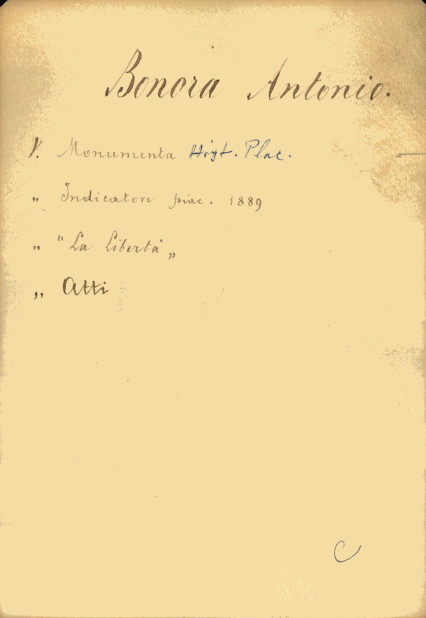 Bonora Antonio.
V. Monumenta Hist. Plac.
" Indicatore piac. 1889
" "La Libertà„
„ Atti
C